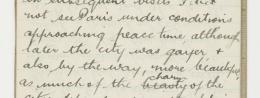 on subsequent visits I did
not see Paris under conditions
approaching peace time although
later the city was gayer &
also by the way, more beautiful
as much of the charm beauty of the